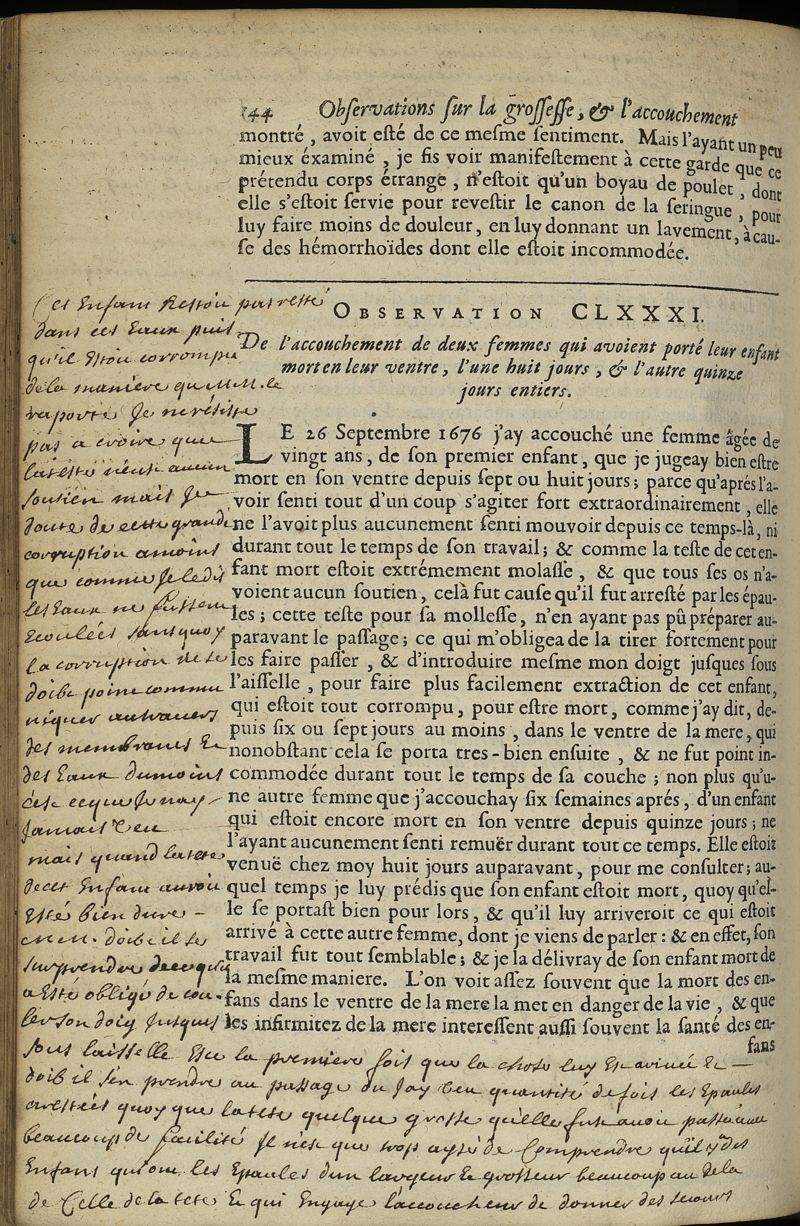 144 Obſervations ſur la groſſeſſe, & l'accouchement
montré, avoit eſté de ce meſme ſentiment. Mais l'ayant un peu
mieux éxaminé, je fis voir manifeſtement à cette garde que ce
prétendu corps étrange, n'eſtoit qu'un boyau de poulet, dont
elle s'eſtoit ſervie pour reveſtir le canon de la ſeringue, pour
luy faire moins de douleur, en luy donnant un lavement, à cau-
ſe des hémorrhoïdes dont elle eſtoit incommodée.
OBSERVATION CLXXXI.
De l'accouchement de deux femmes qui avoient porté leur enfant
mort en leur ventre, l'une huit jours, & l'autre quinze
jours entiers.
LE 26 Septembre 1676 j'ay accouché une femme âgée de
vingt ans, de ſon premier enfant, que je jugeay bien eſtre
mort en ſon ventre depuis ſept ou huit jours; parce qu'aprés l'a-
voir ſenti tout d'un coup s'agiter fort extraordinairement, elle
ne l'avoit plus aucunement ſenti mouvoir depuis ce temps-là, ni
durant tout le temps de ſon travail; & comme la teſte de cet en-
fant mort eſtoit extrémement molaſſe, & que tous ſes os n'a-
voient aucun ſoutien, celà fut cauſe qu'il fut arreſté par les épau-
les; cette teſte pour ſa molleſſe, n'en ayant pas pû préparer au-
paravant le paſſage; ce qui m'obligea de la tirer fortement pour
les faire paſſer, & d'introduire meſme mon doigt juſques ſous
l'aiſſelle, pour faire plus facilement extraction de cet enfant,
qui eſtoit tout corrompu, pour eſtre mort, comme j'ay dit, de-
puis ſix ou ſept jours au moins, dans le ventre de la mere, qui
nonobſtant cela ſe porta tres-bien enſuite, & ne fut point in-
commodée durant tout le temps de ſa couche; non plus qu'u-
ne autre femme que j'accouchay ſix ſemaines aprés, d'un enfant
qui eſtoit encore mort en ſon ventre depuis quinze jours; ne
l'ayant aucunement ſenti remuër durant tout ce temps. Elle eſtoit
venuë chez moy huit jours auparavant, pour me conſulter; au-
quel temps je luy prédis que ſon enfant eſtoit mort, quoy qu'el-
le ſe portaſt bien pour lors, & qu'il luy arriveroit ce qui eſtoit
arrivé à cette autre femme, dont je viens de parler: & en effet, ſon
travail fut tout ſemblable; & je la délivray de ſon enfant mort de
la meſme maniere. L'on voit aſſez ſouvent que la mort des en-
fans dans le ventre de la mere la met en danger de la vie, & que
les infirmitez de la mere intereſſent auſſi ſouvent la ſanté des en-
fans
Cet Enfant pas resté
dans ces Eaux puis
qu'il Estoit corrompu
de la maniere que M. le
raporte Je
pas a croire que
la teste neut aucun
soutien mais Je
doute de cette grande
corruption amoins
que comme Je le dis
les Eaux ne fussent
Ecoulées sans quoy
la corruption ne se
doibt point commu
niquer autravers
des membranes Et
des Eaux dumoins
cest ceque Je nay
Jamais veu
mais quand la tete
de cet Enfant auroit
Esté bien dure
doibt il se
surprendre dece quil
a Esté obligé de cou-
ler son doig Jusques
sous laisselle Est ce la premiere fois que la chose luy Est arrivée Et
doib il sen prendre au passage ou Jay veu quantité de fois les Epaules
arestées quoy que la tete quelque grosse qu'elle fut avoit passé avec
beaucoup de facilité Il nest que trop aysé de Comprendre quil y a des
Enfant qui ont les Epaules dun largeur Et grosseur beaucoup au dela
de Celle de la tete Et qui Engage laccoucheur de donner des secours